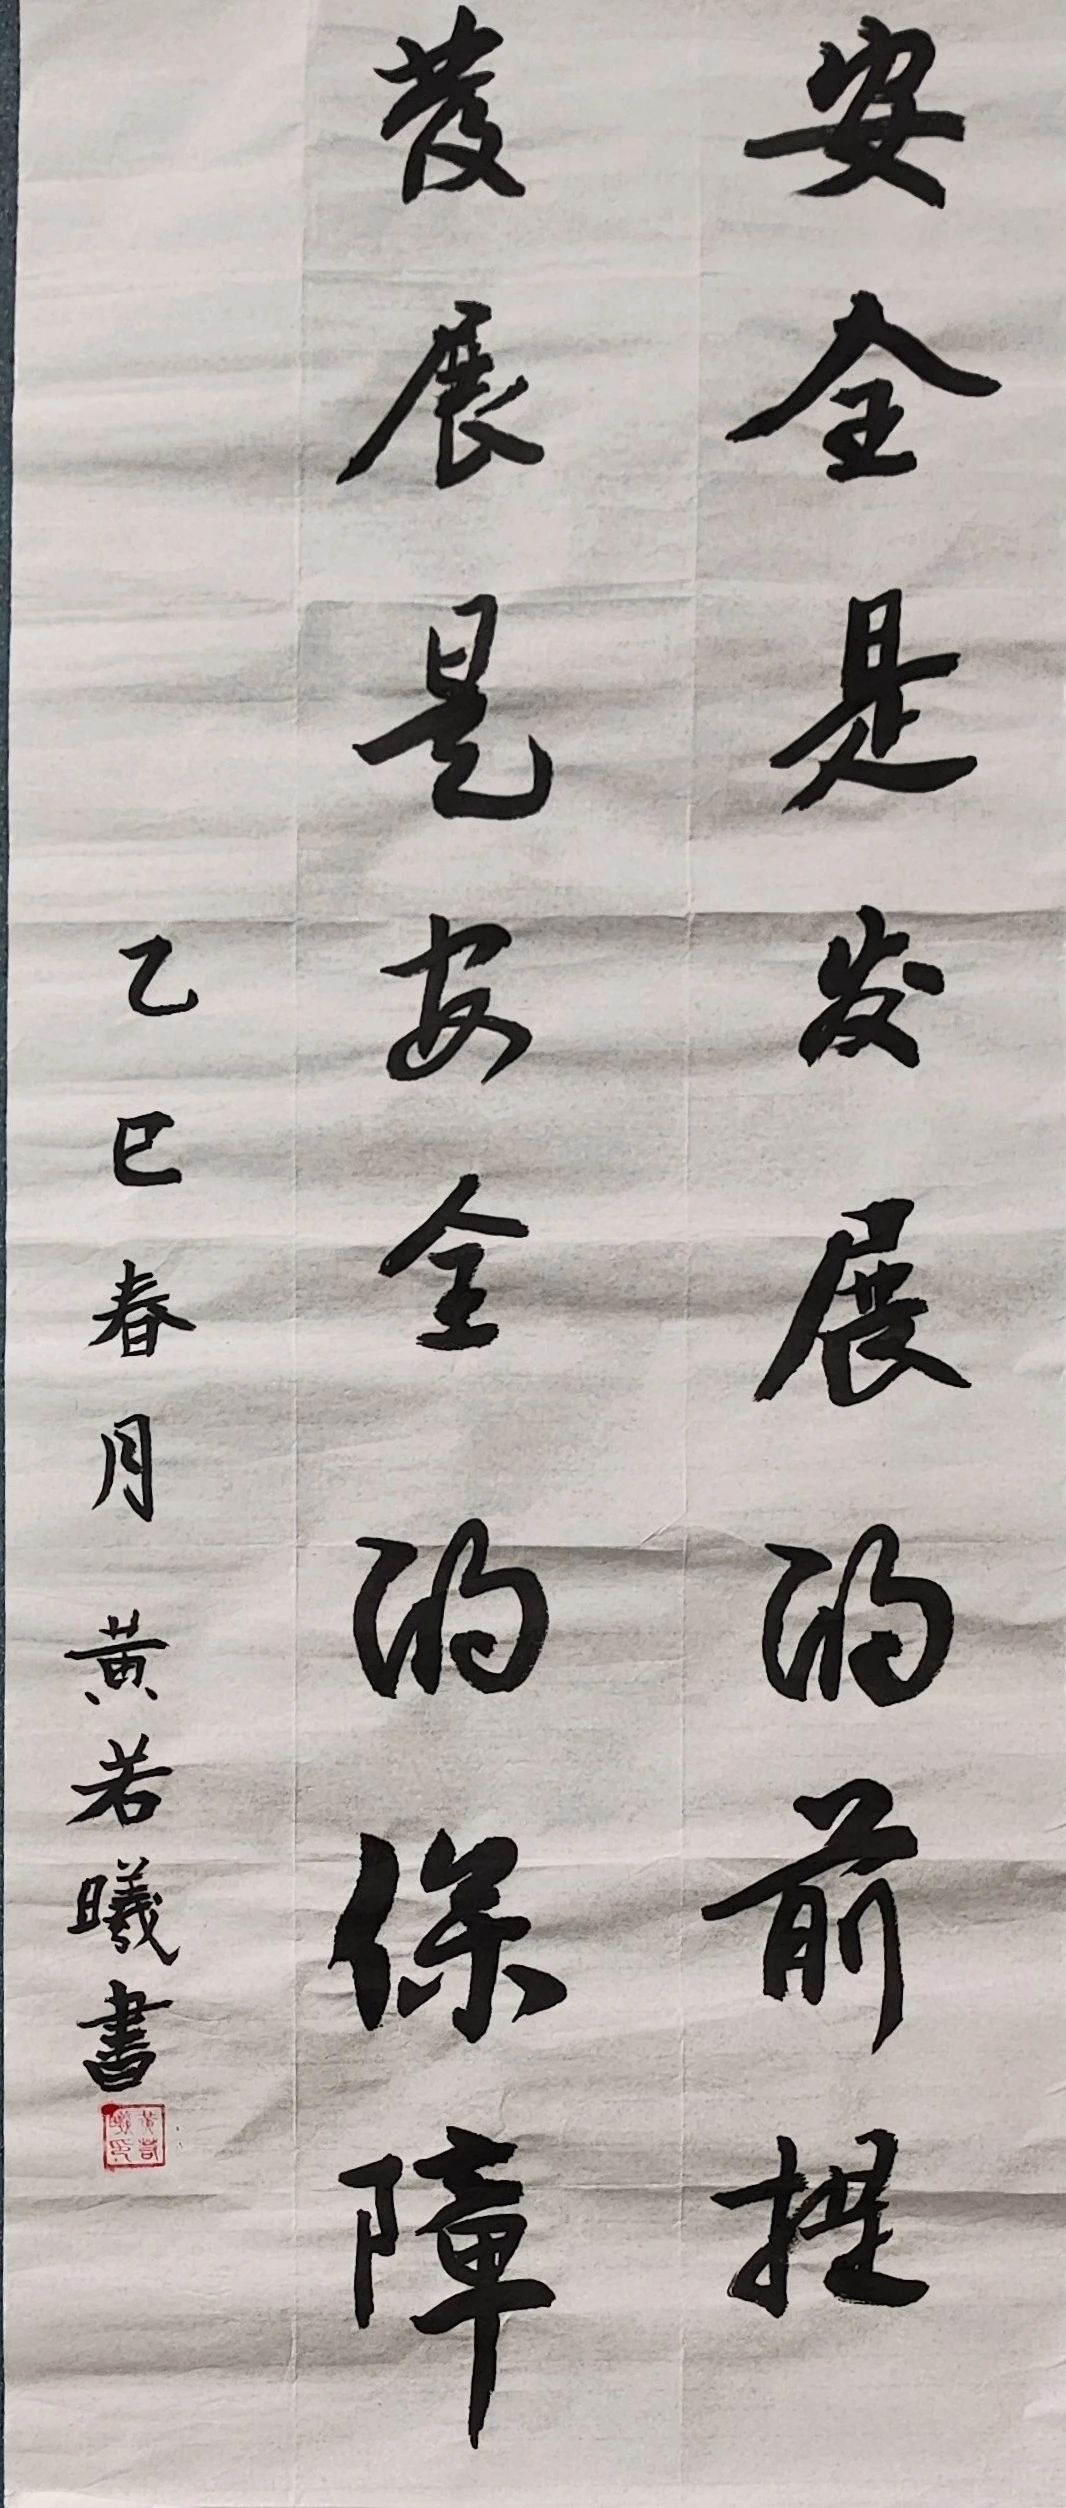 安全是发展的前提
發展是安全的保障
乙巳春月 黄若曦書